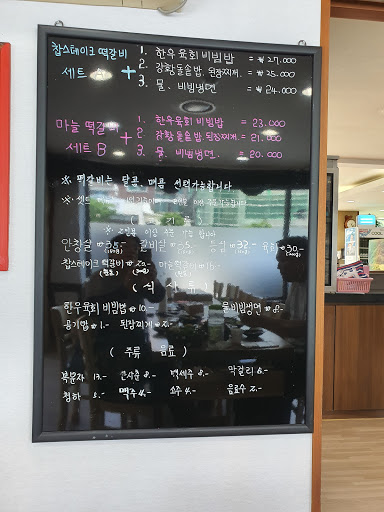 찹스테이크 떡갈비 1. 한우육회비빔밥 = ₩27.000
세트 A + 2. 강황돌솥밥, 된장찌개. = ₩25.000
3. 물、비빔냉면 = ₩24.000
마늘 떡갈비 1. 한우육회비빔밥 = 23.000
세트 B + 2. 강황돌솥밥, 된장찌개 = 21.000
3. 물、비빔냉면. = 20.000
※ 떡갈비는 달콤, 매콤 선택가능합니다
※ 세트
( 고기류 )
※ 2인분 이상 주문
안창살 ₩35.- 갈비살 ₩35.- 등심 ₩32.- 육회 ₩30.-
찹스테이크 떡갈비
( 식사류 )
한우육회 비빔밥 ₩10.- 물비빔냉면 ₩8.-
공기밥 ₩1.- 된장찌개 ₩2.-
( 주류 음료 )
복분자 13.- 산사춘 8.- 백세주 8.- 막걸리 5.-
청하 5.- 맥주 4.- 소주 4.- 음료수 2.-